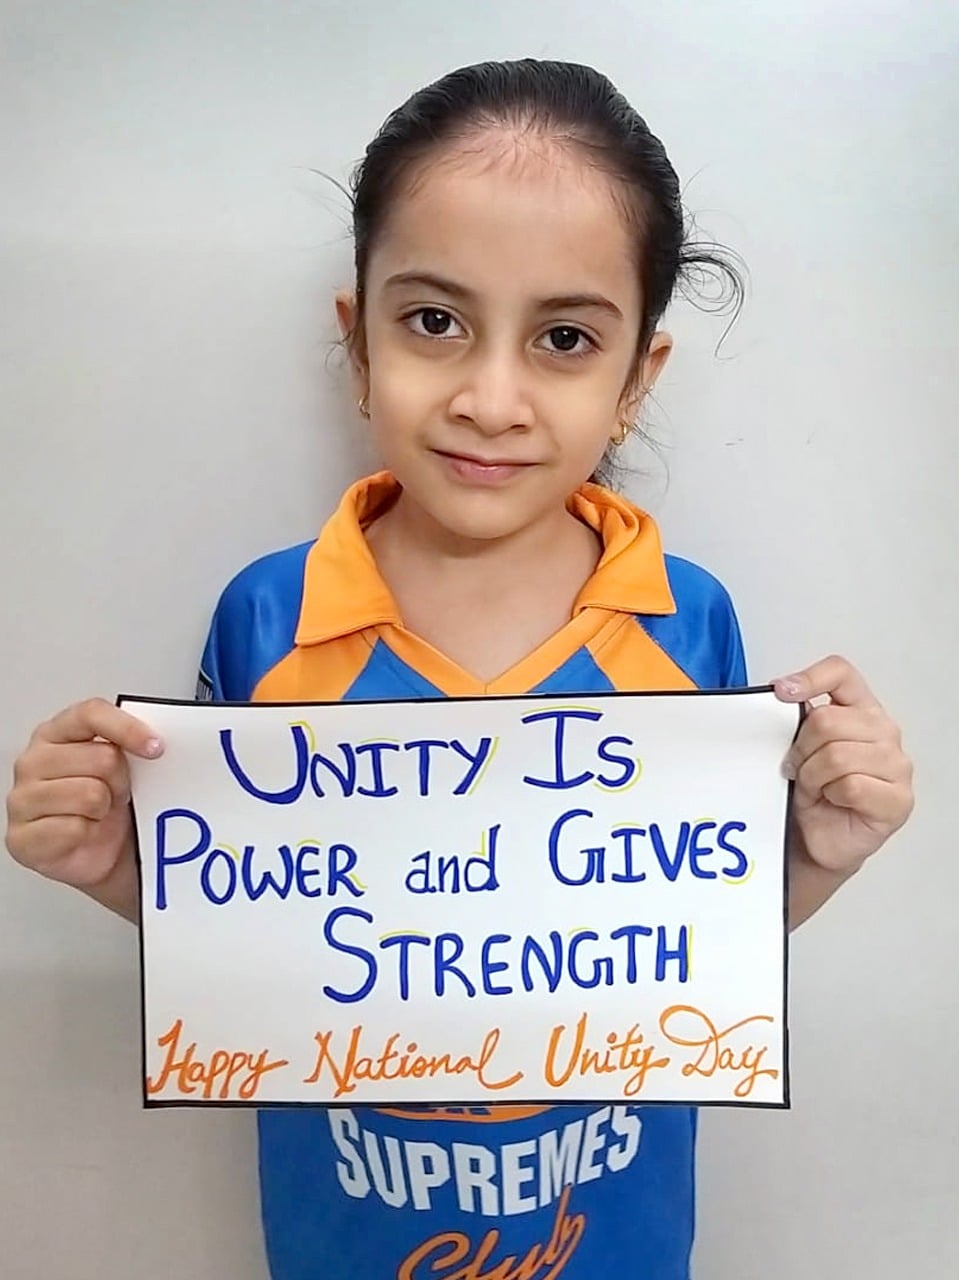 UNITY IS
POWER and GIVES
STRENGTH
Happy National Unity Day
SUPREMES
Club